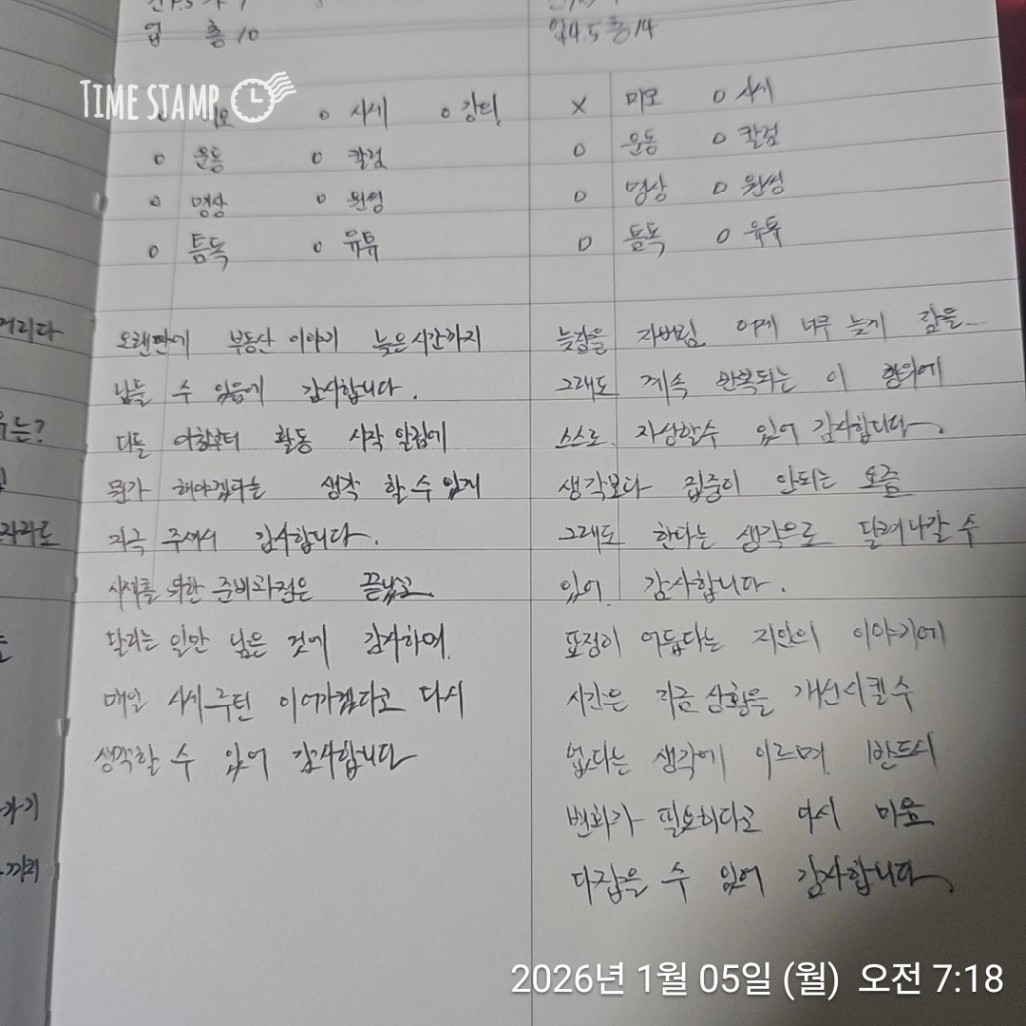 업 총 10
TIME STAMP
o 미모 o 시세 o 강의
o 운동 o 칼럼
o 명상 o 원씽
o 틈독 o 유튜
오랜만에 부동산 이야기 늦은시간까지
남들 수 있음에 감사합니다.
다들 아침부터 활동 시작 알림에
뭔가 해야겠다는 생각 할 수 있게
자극 주셔서 감사합니다.
사재를 위한 준비과정은 끝났고
달리는 일만 남은 것에 감사하며
매일 시세루틴 이어가겠다고 다시
생각할 수 있어 감사합니다
업4.5 총14
x 미모 o 시세
o 운동 o 칼럼
o 명상 o 원씽
o 틈독 o 유튜
늦잠을 자버림 어제 너무 늦게 잠을..
그래도 계속 반복되는 이 행위에
스스로 자상할수 있어 감사합니다.
생각보다 집중이 안되는 요즘
그래도 한다는 생각으로 달려나갈 수
있어 감사합니다.
표정이 어둡다는 지인의 이야기에
시간은 지금 상황을 개선시킬수
없다는 생각에 이르며 반드시
변화가 필요하다고 다시 마음
다잡을 수 있어 감사합니다.
머리다
유는?
자라도
가기
끼리
2026년 1월 05일 (월) 오전 7:18